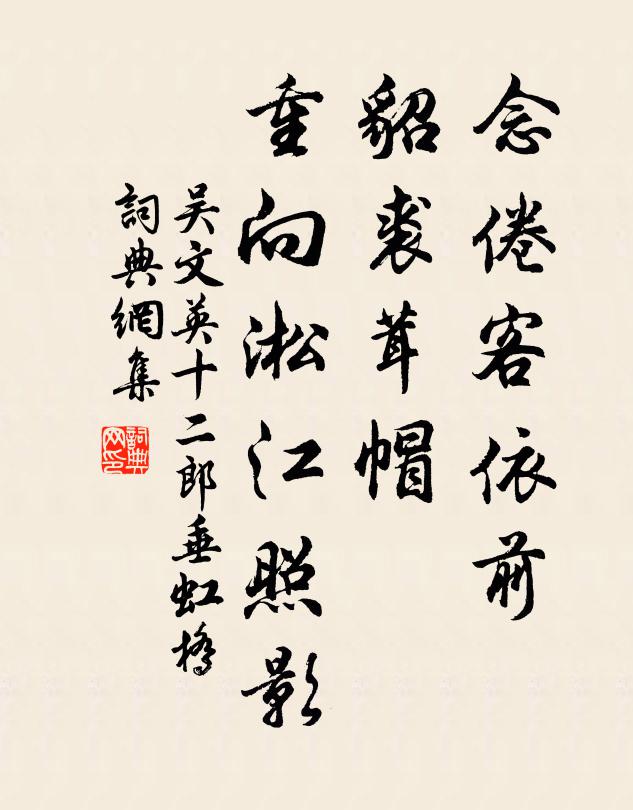 念倦客依前
貂裘茸帽
重向淞江照影
吳文英十二郎垂虹橋
詞典網集
詞典网印